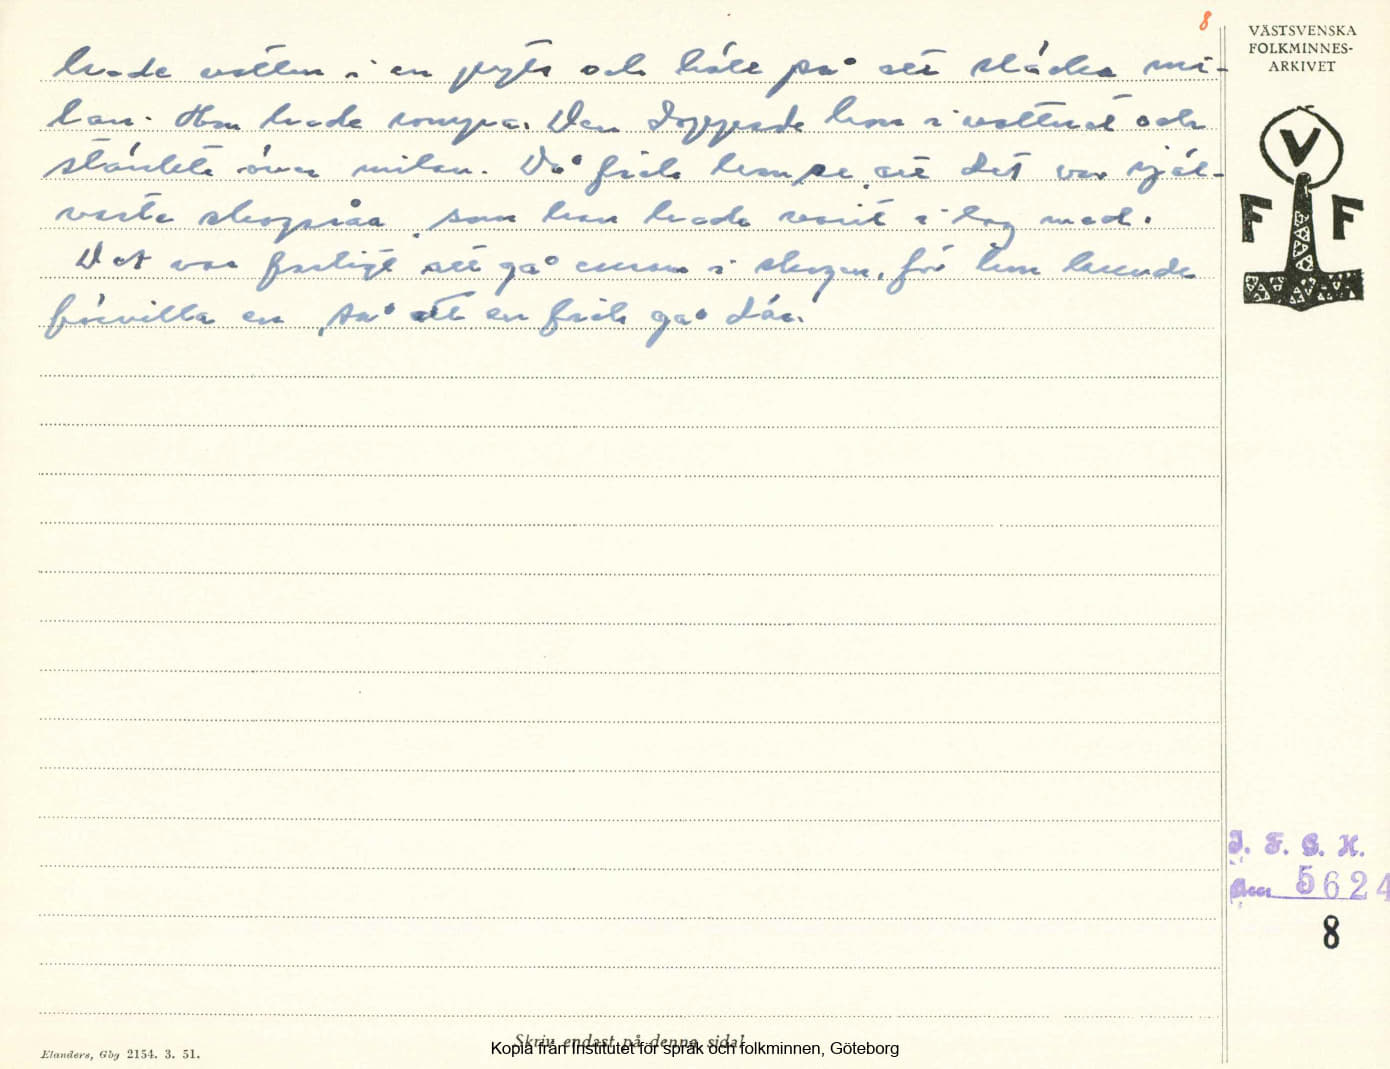 8
VÄSTSVENSKA
FOLKMINNES-
ARKIVET
V
F F
hade vatten i en pyts och höll på att släcka mi-
lan. Hon hade rompa. Den doppade hon i vattnet och
stänkte över milan. Då fick han se, att det var själ-
vaste skogsråa, som han hade varit i lag med.
Det var farligt att gå ensam i skogen, för hon kunde
förvilla en, så att en fick gå där.
I. F. G. H.
5624
8
Skriv endast på denna sida!
Kopia från Institutet för språk och folkminnen, Göteborg
Elanders, Gbg 2154. 3. 51.